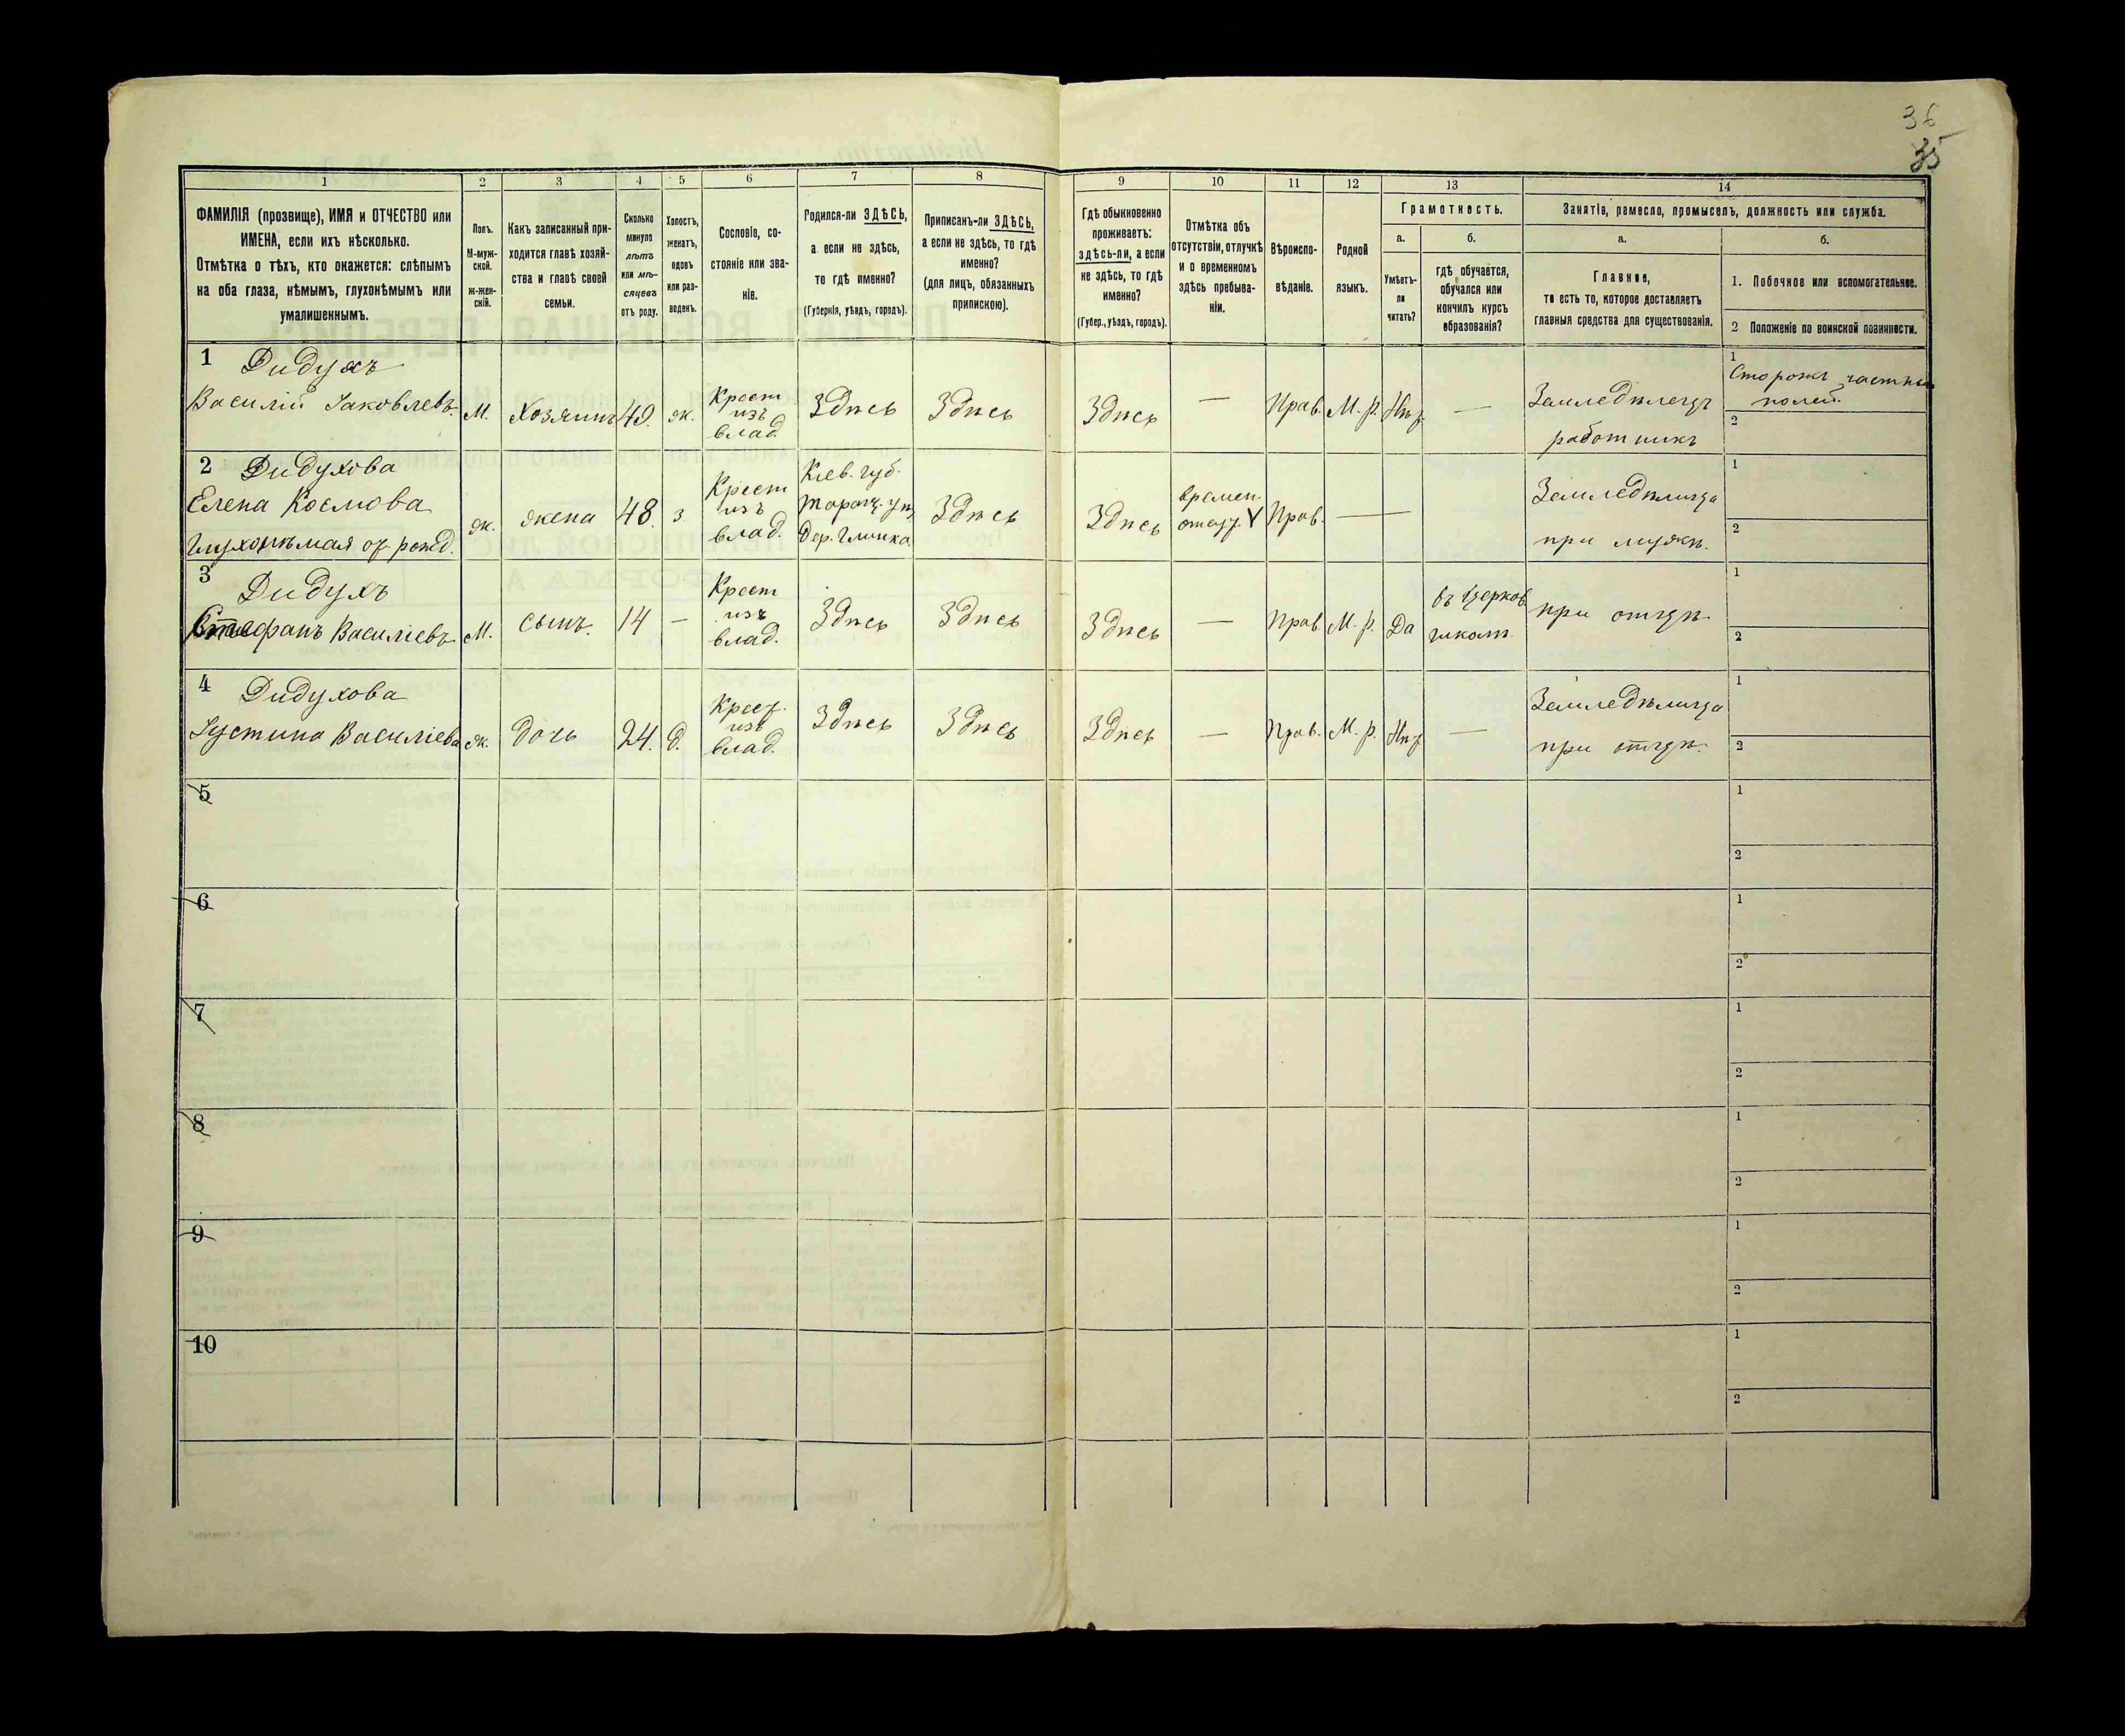 36
35
1
2
3
4
5
6
7
8
9
10
11
12
13
14
ФАМИЛІЯ (прозвище), ИМЯ и ОТЧЕСТВО или
ИМЕНА, если ихъ нѣсколько.
Отмѣтка о тѣхъ, кто окажется: слѣпымъ
на оба глаза, нѣмымъ, глухонѣмымъ или
умалишеннымъ.
Полъ.
М-муж-
ской.
ж-жен-
скій.
Какъ записанный при-
ходится главѣ хозяй-
ства и главѣ своей
семьи.
Сколько
минуло
лѣтъ
или мѣ-
сяцевъ
отъ роду.
Холостъ,
женатъ,
вдовъ
или раз-
веденъ.
Сословіе, со-
стояніе или зва-
ніе.
Родился-ли ЗДѢСЬ,
а если не здѣсь,
то гдѣ именно?
(Губернія, уѣздъ, городъ).
Приписанъ-ли ЗДѢСЬ,
а если не здѣсь, то гдѣ
именно?
(для лицъ, обязанныхъ
припискою).
Гдѣ обыкновенно
проживаетъ:
здѣсь-ли, а если
не здѣсь, то гдѣ
именно?
(Губер., уѣздъ, городъ).
Отмѣтка объ
отсутствіи, отлучкѣ
и о временномъ
здѣсь пребыва-
ніи.
Вѣроиспо-
вѣданіе.
Родной
языкъ.
Грамотность.
а.
Умѣетъ-
ли
читать?
б.
гдѣ обучается,
обучался или
кончилъ курсъ
образованія?
Занятіе, ремесло, промыселъ, должность или служба.
а.
Главное,
то есть то, которое доставляетъ
главныя средства для существованія.
б.
1. Побочное или вспомогательное.
2 Положеніе по воинской повинности.
1 Дидухъ
Василій Іаковлевъ.
М.
Хозяинъ
49.
ж.
Крест
изъ
влад.
Здѣсь
Здѣсь
Здѣсь
—
Прав.
М. р.
Нѣт
—
Земледѣлецъ
работникъ
1
Сторожъ частны
полей.
2
2 Дидухова
Елена Космова
глухонѣмая от рожд.
ж.
жена
48.
з.
Крест
изъ
влад.
Киев. губ.
Таращ. у
Дер. Глинка
Здѣсь
Здѣсь
времен
отсут. Y
Прав.
—
Земледѣлица
при мужѣ.
1
2
3
Дидухъ
Стефанъ Василіевъ
М.
сынъ.
14
—
Крест
изъ
влад.
Здѣсь
Здѣсь
Здѣсь
—
Прав.
М. р.
Да
въ церков
школѣ
при отцѣ.
1
2
4 Дидухова
Іустина Василіева
ж.
дочь
24.
д.
Крест.
изъ
влад.
Здѣсь
Здѣсь
Здѣсь
—
Прав.
М. р.
Нѣт
—
Земледѣлица
при отцѣ.
1
2
5
1
2
6
1
2
7
1
2
8
1
2
9
1
2
10
1
2